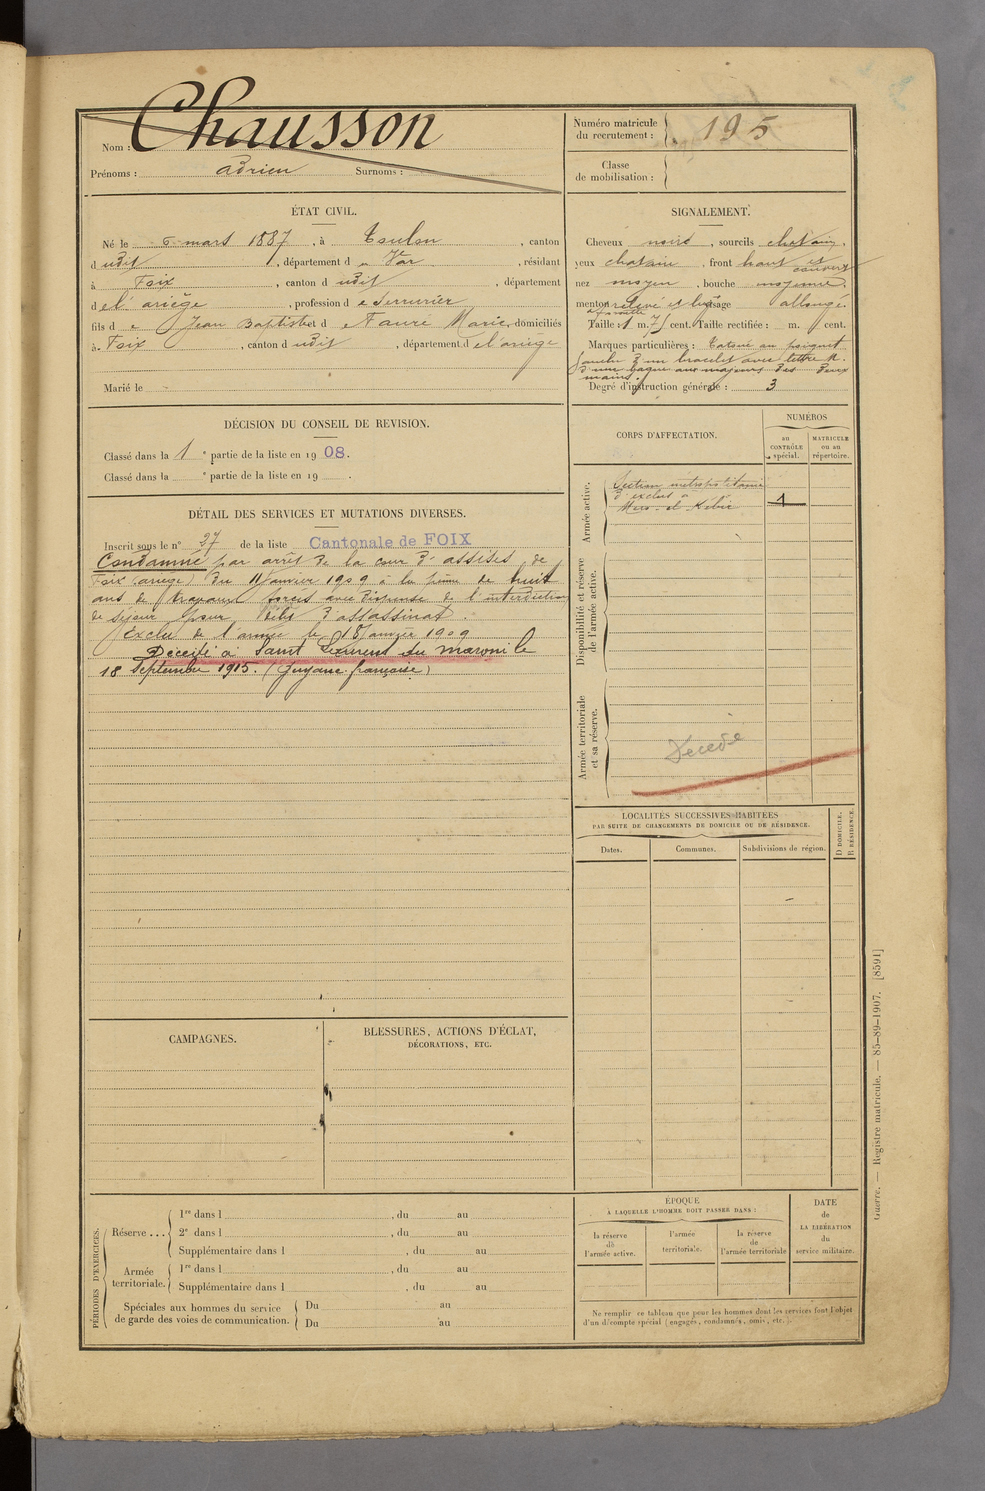 Nom : Chausson
Prénoms : Adrien Surnoms :
Numéro matricule du recrutement : 195
Classe de mobilisation :
ÉTAT CIVIL.
Né le 6 mars 1887, à Toulon, canton
dudit, département du Var, résidant
à Foix, canton dudit, département
de l'ariège, profession de Serrurier
fils de Jean Baptiste et de Faure Marie, domiciliés
à Foix, canton dudit, département de l'ariège
Marié le
SIGNALEMENT.
Cheveux noirs, sourcils chatain.
yeux chatain, front haut et couvert
nez moyen, bouche moyenne.
menton relevé et visage allongé.
Taille : 1 m. 71 cent. Taille rectifiée : m. cent.
Marques particulières : Tatoué au poignet
gauche d'un bracelet avec lettre M.
d'une bague aux majeurs des deux
mains.
Degré d'instruction générale : 3
DÉCISION DU CONSEIL DE REVISION.
Classé dans la 1e partie de la liste en 1908.
Classé dans la e partie de la liste en 19 .
CORPS D'AFFECTATION.
NUMÉROS
au CONTRÔLE spécial.
MATRICULE ou au répertoire.
Armée active.
Section métropolitaine
d'exclus à
Mers-el-Kébir
1
Disponibilité et réserve de l'armée active.
Armée territoriale et sa réserve.
Décédé
DÉTAIL DES SERVICES ET MUTATIONS DIVERSES.
Inscrit sous le n° 27 de la liste Cantonale de FOIX
Condamné par arrêt de la cour d'assises de
Foix (ariège) du 11 Janvier 1909 à la peine de huit
ans de travaux forcés avec dispense de l'interdiction
de séjour pour d'assassinat.
Exclu de l'armée le 18 Janvier 1909
Décédé à Saint Laurent du maroni le
18 Septembre 1915. (Guyane française)
LOCALITÉS SUCCESSIVES HABITÉES
PAR SUITE DE CHANGEMENTS DE DOMICILE OU DE RÉSIDENCE.
Dates.
Communes.
Subdivisions de région.
D DOMICILE.
R RÉSIDENCE.
CAMPAGNES.
BLESSURES, ACTIONS D'ÉCLAT,
DÉCORATIONS, ETC.
PÉRIODES D'EXERCICES.
Réserve ...
1re dans l , du au
2e dans l , du au
Supplémentaire dans l , du au
Armée territoriale.
1re dans l , du au
Supplémentaire dans l , du au
Spéciales aux hommes du service
de garde des voies de communication.
Du au
Du au
ÉPOQUE
À LAQUELLE L'HOMME DOIT PASSER DANS :
la réserve de l'armée active.
l'armée territoriale.
la réserve de l'armée territoriale
DATE de LA LIBÉRATION du service militaire.
Ne remplir ce tableau que pour les hommes dont les services font l'objet
d'un décompte spécial (engagés, condamnés, omis, etc.).
Guerre. — Registre matricule. — 85-89-1907. [8591]